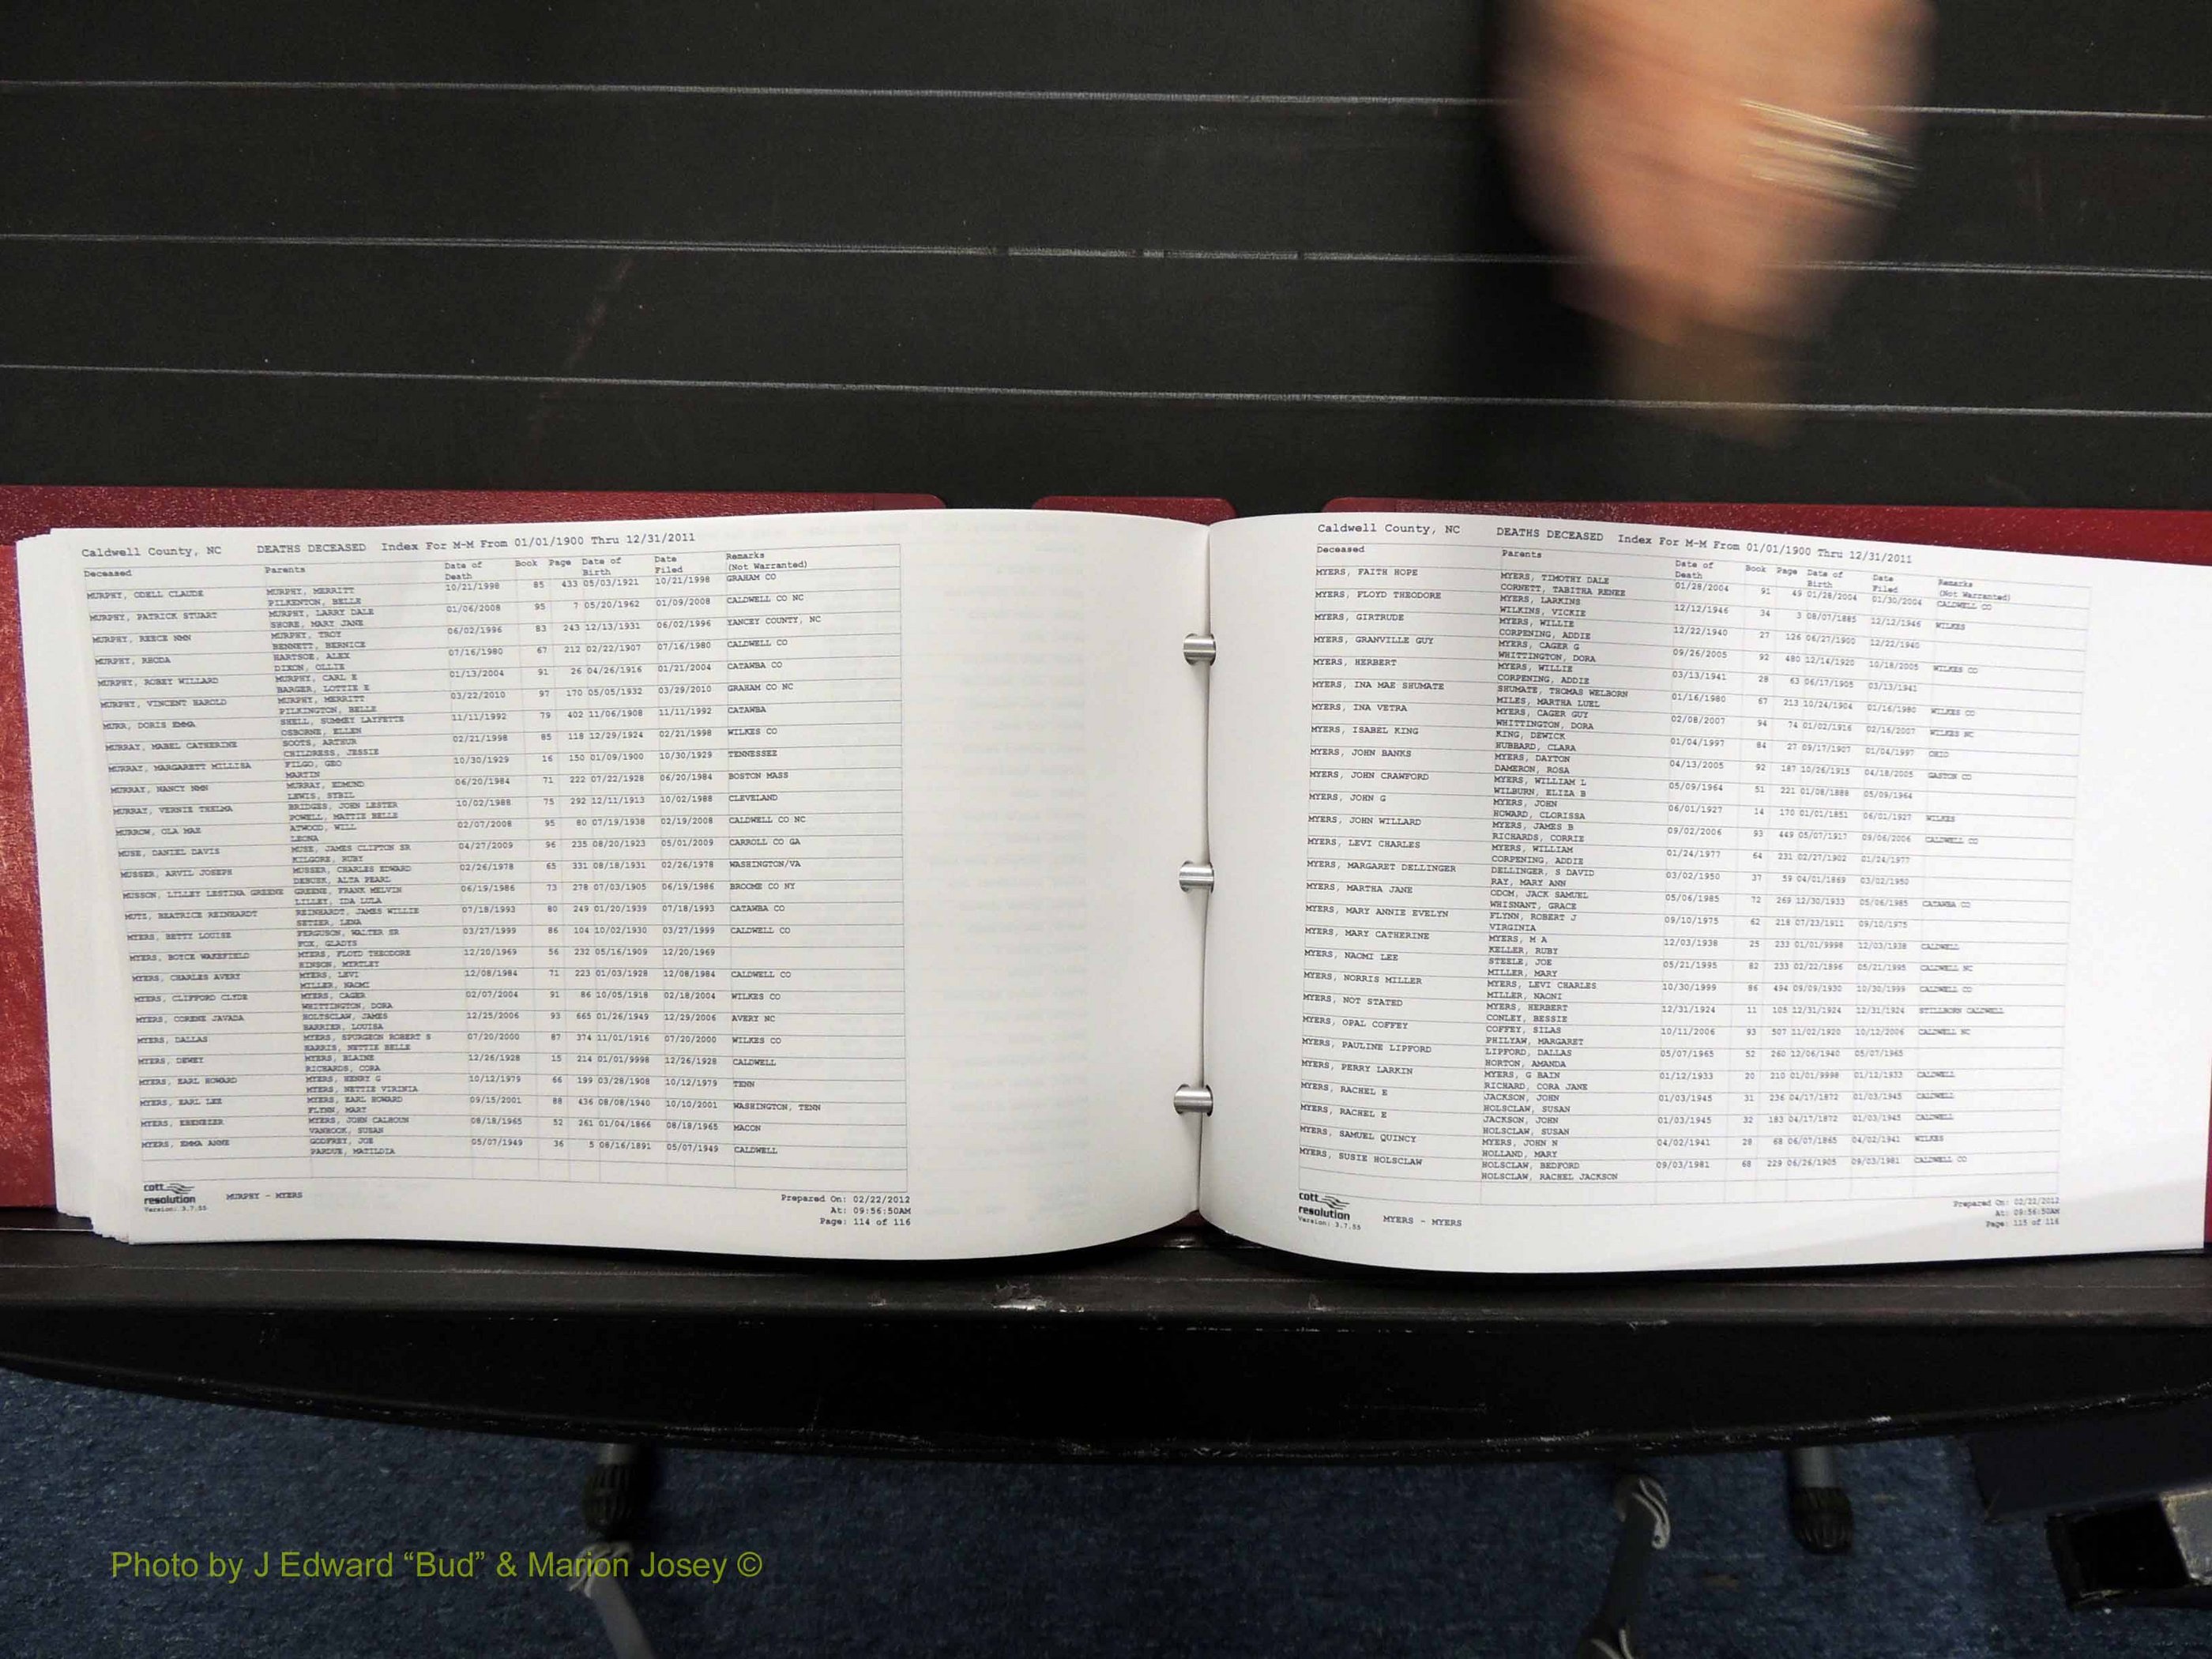 Caldwell County, NC DEATHS DECEASED Index For M-M From 01/01/1900 Thru 12/31/2011
Deceased Parents Date of Death Book Page Date of Birth Date Filed Remarks (Not Warranted)
MURPHY, ODELL CLAUDE MURPHY, MERRITT 10/21/1998 85 433 05/03/1921 10/21/1998 GRAHAM CO
PILKENTON, BELLE
MURPHY, PATRICK STUART MURPHY, LARRY DALE 01/06/2008 95 7 05/20/1962 01/09/2008 CALDWELL CO NC
SHORE, MARY JANE
MURPHY, REECE NMN MURPHY, TROY 06/02/1996 83 243 12/13/1931 06/02/1996 YANCEY COUNTY, NC
BENNETT, BERNICE
MURPHY, RHODA HARTSOE, ALEX 07/16/1980 67 212 02/22/1907 07/16/1980 CALDWELL CO
DIXON, OLLIE
MURPHY, ROBEY WILLARD MURPHY, CARL E 01/13/2004 91 26 04/26/1916 01/21/2004 CATAWBA CO
BARGER, LOTTIE E
MURPHY, VINCENT HAROLD MURPHY, MERRITT 03/22/2010 97 170 05/05/1932 03/29/2010 GRAHAM CO NC
PILKINGTON, BELLE
MURR, DORIS EMMA SHELL, SUMMEY LAFFETTE 11/11/1992 79 402 11/06/1908 11/11/1992 CATAWBA
OSBORNE, ELLEN
MURRAY, MABEL CATHERINE SOOTS, ARTHUR 02/21/1998 85 118 12/29/1924 02/21/1998 WILKES CO
CHILDRESS, JESSIE
MURRAY, MARGARETT MILLISA FILGO, GEO 10/30/1929 16 150 01/09/1900 10/30/1929 TENNESSEE
MARTIN
MURRAY, NANCY NMN MURRAY, EDMUND 06/20/1984 71 222 07/22/1928 06/20/1984 BOSTON MASS
LEWIS, SYBIL
MURRAY, VERNIE THELMA BRIDGES, JOHN LESTER 10/02/1988 75 292 12/11/1913 10/02/1988 CLEVELAND
POWELL, MATTIE BELLE
MURROW, OLA MAE ATWOOD, WILL 02/07/2008 95 80 07/19/1938 02/19/2008 CALDWELL CO NC
LEONA
MUSE, DANIEL DAVIS MUSE, JAMES CLIFTON SR 04/27/2009 96 235 08/20/1923 05/01/2009 CARROLL CO GA
KILGORE, RUBY
MUSSER, ARVIL JOSEPH MUSSER, CHARLES EDWARD 02/26/1978 65 331 08/18/1931 02/26/1978 WASHINGTON/VA
DEBUSK, ALTA PEARL
MUSSON, LILLEY LESTINA GREENE GREENE, FRANK MELVIN 06/19/1986 73 278 07/03/1905 06/19/1986 BROOME CO NY
LILLEY, IDA LULA
MUTZ, BEATRICE REINHARDT REINHARDT, JAMES WILLIE 07/18/1993 80 249 01/20/1939 07/18/1993 CATAWBA CO
SETZER, LENA
MYERS, BETTY LOUISE FERGUSON, WALTER SR 03/27/1999 86 104 10/02/1930 03/27/1999 CALDWELL CO
FOX, GLADYS
MYERS, BOYCE WAKEFIELD MYERS, FLOYD THEODORE 12/20/1969 56 232 05/16/1909 12/20/1969
HINSON, MYRTLEY
MYERS, CHARLES AVERY MYERS, LEVI 12/08/1984 71 223 01/03/1928 12/08/1984 CALDWELL CO
MILLER, NAOMI
MYERS, CLIFFORD CLYDE MYERS, CAGER 02/07/2004 91 86 10/05/1918 02/18/2004 WILKES CO
WHITTINGTON, DORA
MYERS, CORENE JAVADA HOLTSCLAW, JAMES 12/25/2006 93 665 01/26/1949 12/29/2006 AVERY NC
BARRIER, LOUISA
MYERS, DALLAS MYERS, SPURGEON ROBERT S 07/20/2000 87 374 11/01/1916 07/20/2000 WILKES CO
HARRIS, NETTIE BELLE
MYERS, DEWEY MYERS, BLAINE 12/26/1928 15 214 01/01/9998 12/26/1928 CALDWELL
RICHARDS, CORA
MYERS, EARL HOWARD MYERS, HENRY G 10/12/1979 66 199 03/28/1908 10/12/1979 TENN
MYERS, NETTIE VIRINIA
MYERS, EARL LEE MYERS, EARL HOWARD 09/15/2001 88 436 08/08/1940 10/10/2001 WASHINGTON, TENN
FLYNN, MARY
MYERS, EBENEZER MYERS, JOHN CALHOUN 08/18/1965 52 261 01/04/1866 08/18/1965 MACON
VANHOOK, SUSAN
MYERS, EMMA ANNE GODFREY, JOE 05/07/1949 36 5 08/16/1891 05/07/1949 CALDWELL
PARDUE, MATILDIA
cott resolution
Version: 3.7.55
MURPHY - MYERS
Prepared On: 02/22/2012
At: 09:56:50AM
Page: 114 of 116
Caldwell County, NC DEATHS DECEASED Index For M-M From 01/01/1900 Thru 12/31/2011
Deceased Parents Date of Death Book Page Date of Birth Date Filed Remarks (Not Warranted)
MYERS, FAITH HOPE MYERS, TIMOTHY DALE 01/28/2004 91 49 01/28/2004 01/30/2004 CALDWELL CO
CORNETT, TABITHA RENEE
MYERS, FLOYD THEODORE MYERS, LARKINS 12/12/1946 34 3 08/07/1885 12/12/1946 WILKES
WILKINS, VICKIE
MYERS, GIRTRUDE MYERS, WILLIE 12/22/1940 27 126 06/27/1900 12/22/1940
CORPENING, ADDIE
MYERS, GRANVILLE GUY MYERS, CAGER G 09/26/2005 92 480 12/14/1920 10/18/2005 WILKES CO
WHITTINGTON, DORA
MYERS, HERBERT MYERS, WILLIE 03/13/1941 28 63 06/17/1905 03/13/1941
CORPENING, ADDIE
MYERS, INA MAE SHUMATE SHUMATE, THOMAS WELBORN 01/16/1980 67 213 10/24/1904 01/16/1980 WILKES CO
MILES, MARTHA LUEL
MYERS, INA VETRA MYERS, CAGER GUY 02/08/2007 94 74 01/02/1916 02/16/2007 WILKES NC
WHITTINGTON, DORA
MYERS, ISABEL KING KING, DEWICK 01/04/1997 84 27 09/17/1907 01/04/1997 OHIO
HUBBARD, CLARA
MYERS, JOHN BANKS MYERS, DAYTON 04/13/2005 92 187 10/26/1915 04/18/2005 GASTON CO
DAMERON, ROSA
MYERS, JOHN CRAWFORD MYERS, WILLIAM L 05/09/1964 51 221 01/08/1888 05/09/1964
WILBURN, ELIZA B
MYERS, JOHN G MYERS, JOHN 06/01/1927 14 170 01/01/1851 06/01/1927 WILKES
HOWARD, CLORISSA
MYERS, JOHN WILLARD MYERS, JAMES B 09/02/2006 93 449 05/07/1917 09/06/2006 CALDWELL CO
RICHARDS, CORRIE
MYERS, LEVI CHARLES MYERS, WILLIAM 01/24/1977 64 231 02/27/1902 01/24/1977
CORPENING, ADDIE
MYERS, MARGARET DELLINGER DELLINGER, S DAVID 03/02/1950 37 59 04/01/1869 03/02/1950
RAY, MARY ANN
MYERS, MARTHA JANE ODOM, JACK SAMUEL 05/06/1985 72 269 12/30/1933 05/06/1985 CATAWBA CO
WHISNANT, GRACE
MYERS, MARY ANNIE EVELYN FLYNN, ROBERT J 09/10/1975 62 218 07/23/1911 09/10/1975
VIRGINIA
MYERS, MARY CATHERINE MYERS, M A 12/03/1938 25 233 01/01/9998 12/03/1938 CALDWELL
KELLER, RUBY
MYERS, NAOMI LEE STEELE, JOE 05/21/1995 82 233 02/22/1896 05/21/1995 CALDWELL NC
MILLER, MARY
MYERS, NORRIS MILLER MYERS, LEVI CHARLES 10/30/1999 86 494 09/09/1930 10/30/1999 CALDWELL CO
MILLER, NAONI
MYERS, NOT STATED MYERS, HERBERT 12/31/1924 11 105 12/31/1924 12/31/1924 STILLBORN CALDWELL
CONLEY, BESSIE
MYERS, OPAL COFFEY COFFEY, SILAS 10/11/2006 93 507 11/02/1920 10/12/2006 CALDWELL NC
PHILYAW, MARGARET
MYERS, PAULINE LIPFORD LIPFORD, DALLAS 05/07/1965 52 260 12/06/1940 05/07/1965
HORTON, AMANDA
MYERS, PERRY LARKIN MYERS, G BAIN 01/12/1933 20 210 01/01/9998 01/12/1933 CALDWELL
RICHARD, CORA JANE
MYERS, RACHEL E JACKSON, JOHN 01/03/1945 31 236 04/17/1872 01/03/1945 CALDWELL
HOLSCLAW, SUSAN
MYERS, RACHEL E JACKSON, JOHN 01/03/1945 32 183 04/17/1872 01/03/1945 CALDWELL
HOLSCLAW, SUSAN
MYERS, SAMUEL QUINCY MYERS, JOHN N 04/02/1941 28 68 06/07/1865 04/02/1941 WILKES
HOLLAND, MARY
MYERS, SUSIE HOLSCLAW HOLSCLAW, BEDFORD 09/03/1981 68 229 06/26/1905 09/03/1981 CALDWELL CO
HOLSCLAW, RACHEL JACKSON
cott resolution
Version: 3.7.55
MYERS - MYERS
Prepared On: 02/22/2012
At: 09:56:50AM
Page: 115 of 116
Photo by J Edward “Bud” & Marion Josey ©